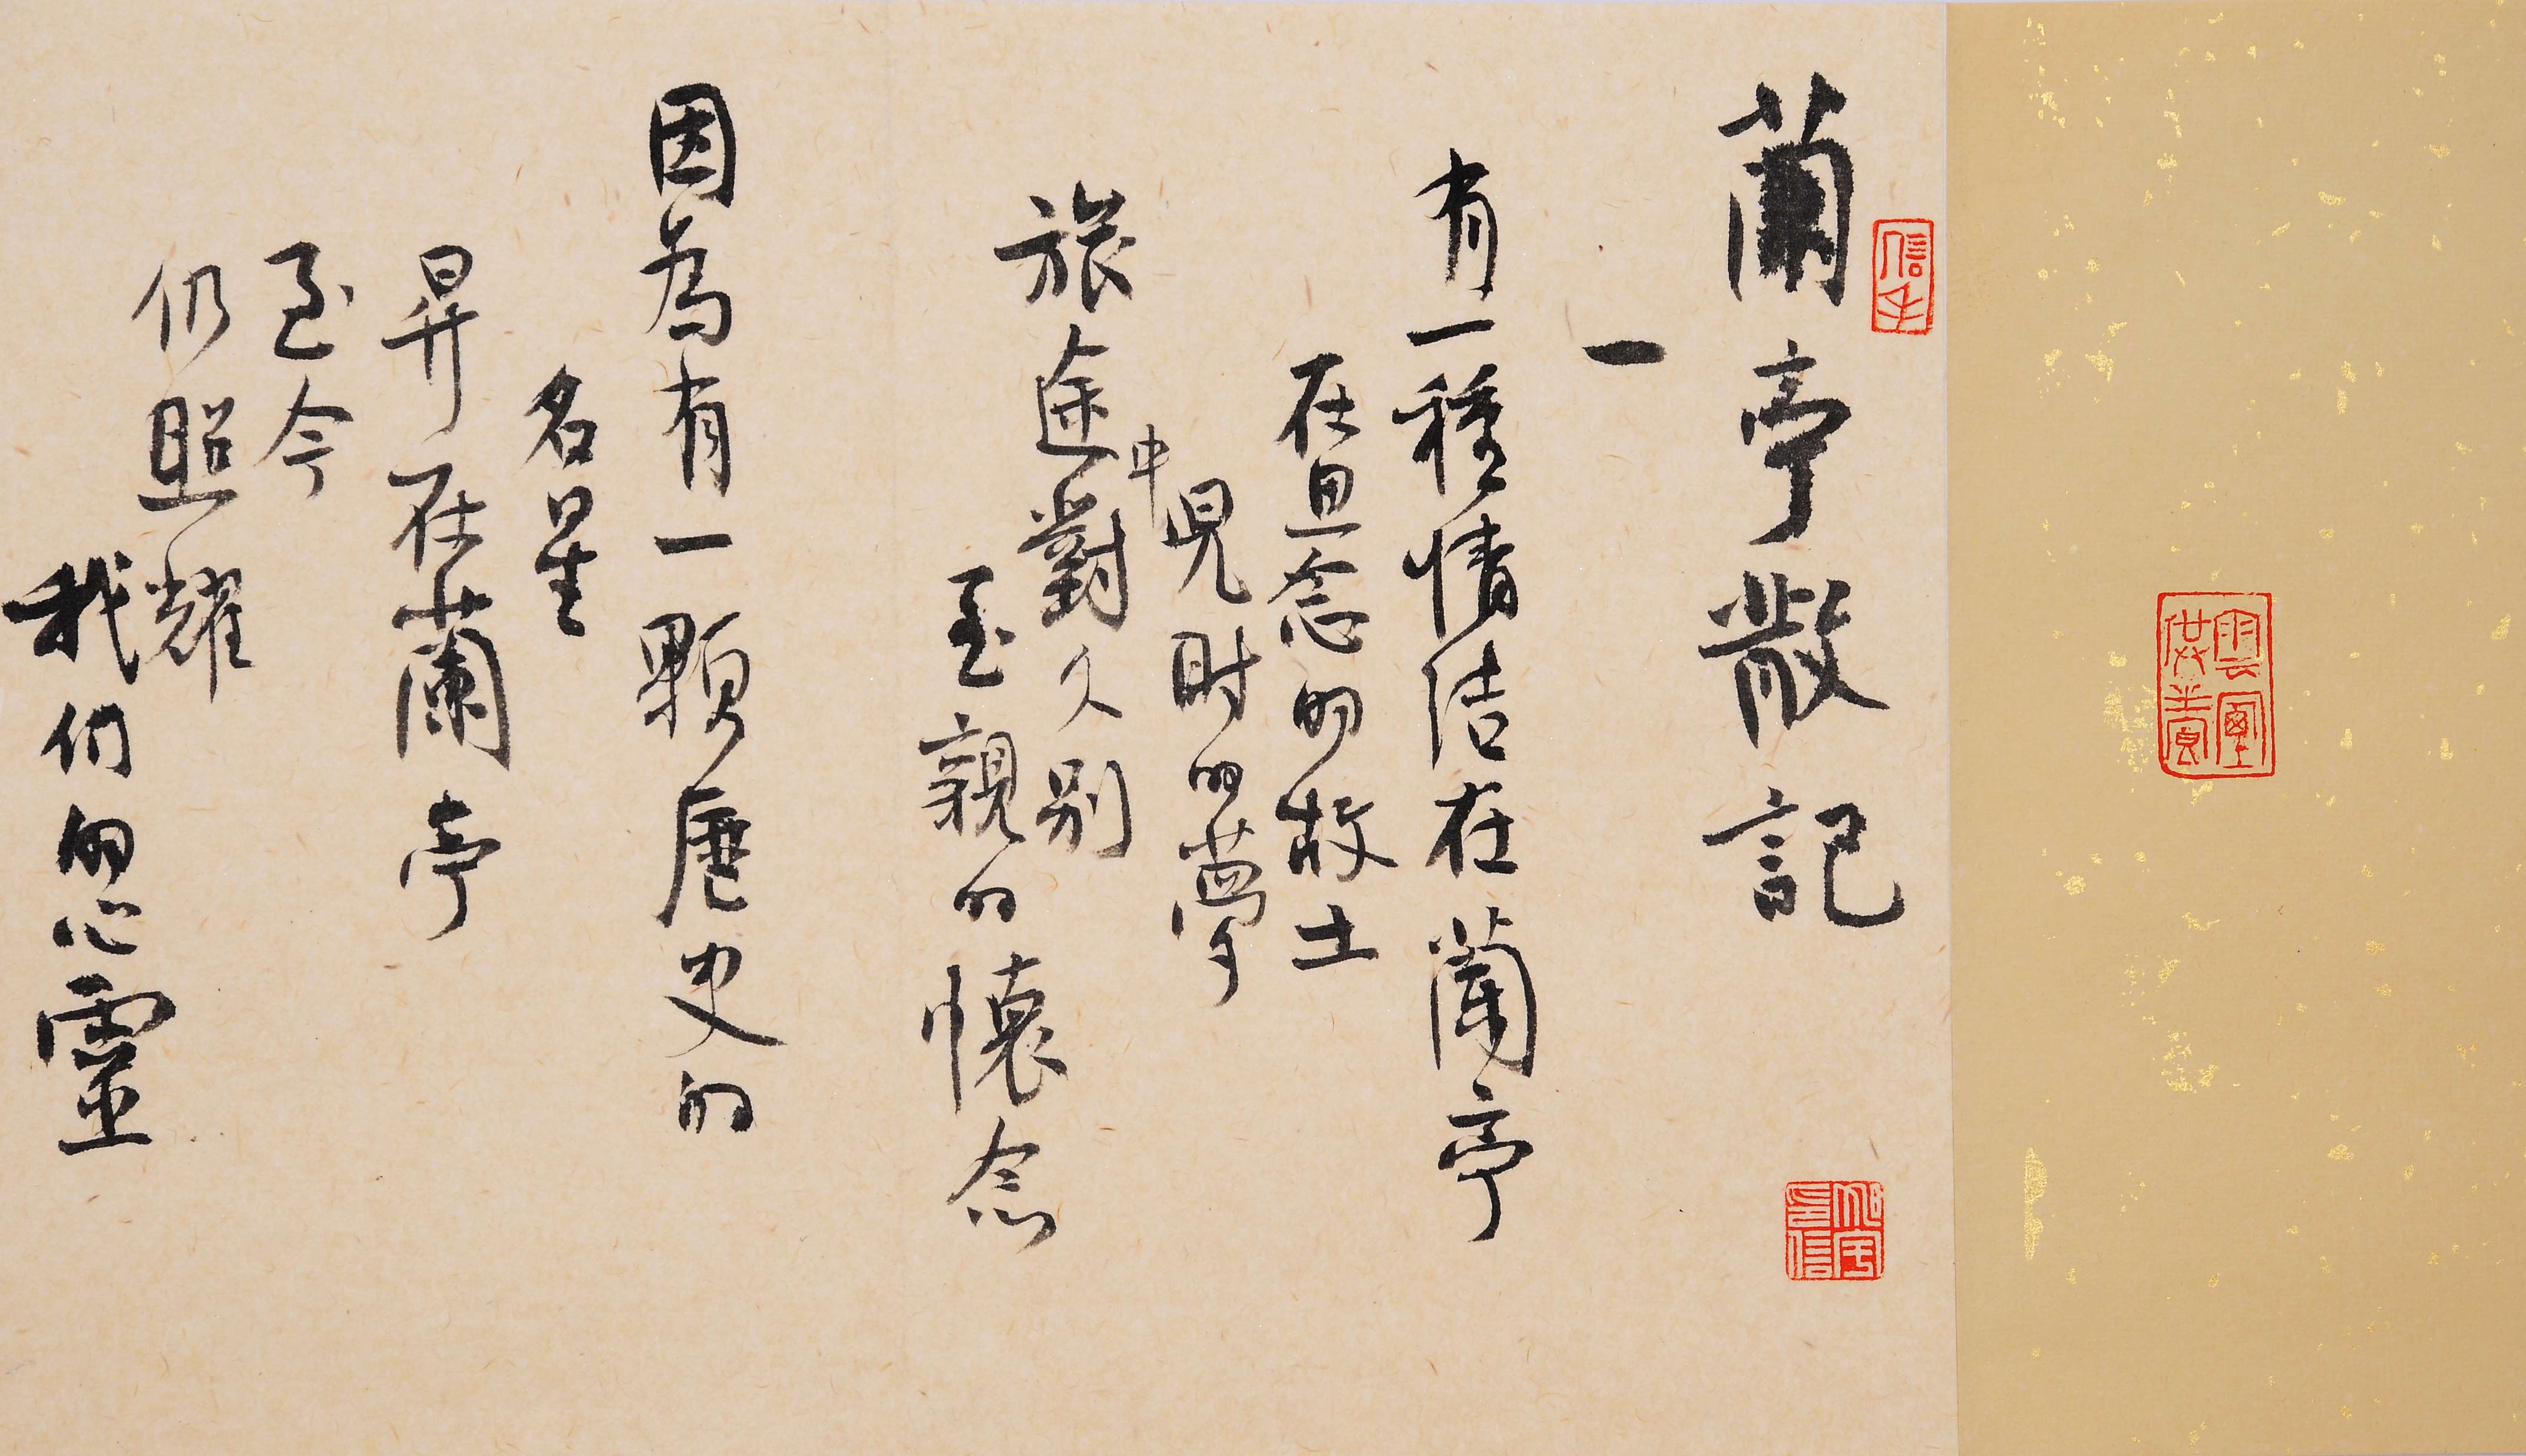 信手
蘭亭散記
一
有一種情结在蘭亭
在思念的故土
兒时的夢
旅途中對久别
至親的懷念
因為有一顆歷史的
名星
昇在蘭亭
至今
仍照耀
我们的心靈